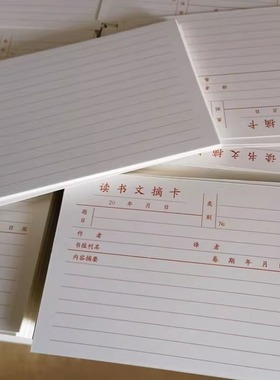 摘卡
书文摘
读书文摘卡
20 年 月 日
类别
题目
№
作者 译者
书报刊名 卷 期 年 月
内容摘要